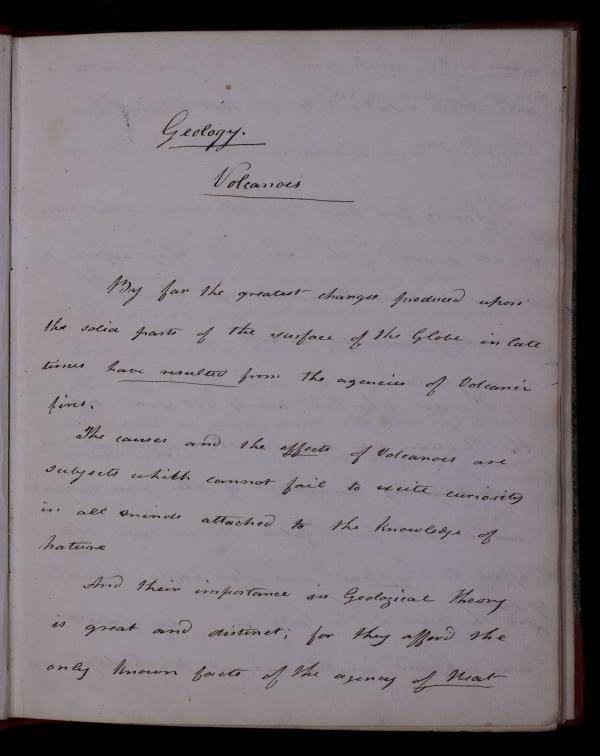 Geology.
Volcanoes
By far the greatest changes produced upon
the solid parts of the surface of the Globe in late
times have resulted from the agencies of Volcanic
fire.
The causes and the effects of Volcanoes are
subjects which cannot fail to excite curiosity
in all minds attached to the knowledge of
Nature
And their importance in Geological Theory
is great and distinct; for they afford the
only known facts of the agency of Heat